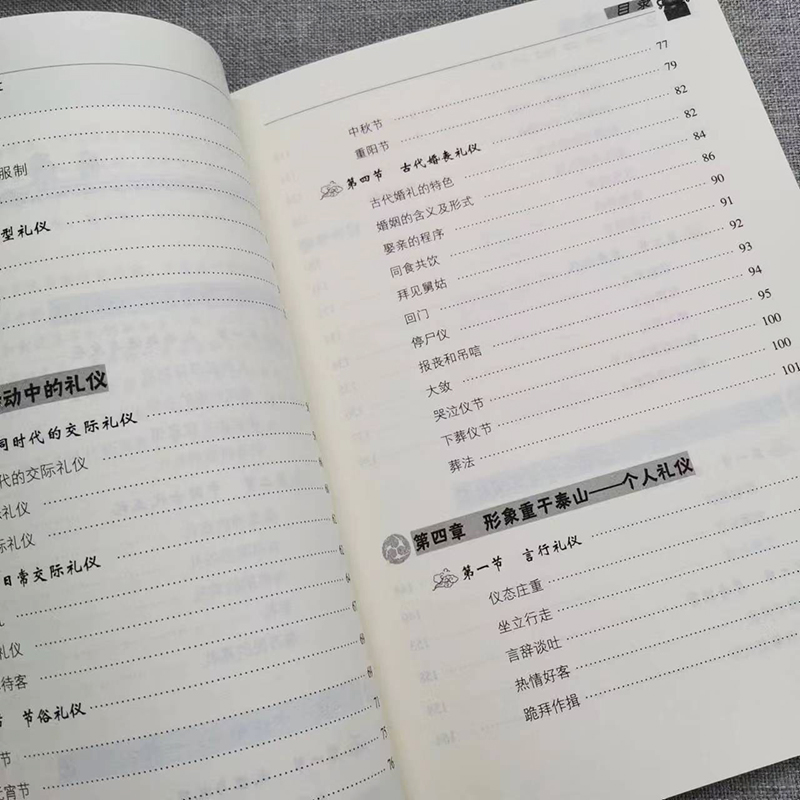 服制
型礼仪
动中的礼仪
同时代的交际礼仪
代的交际礼仪
礼仪
际礼仪
日常交际礼仪
礼仪
待客
节俗礼仪
节
元宵节
目录
中秋节 77
重阳节 79
第四节 古代婚丧礼仪 82
古代婚礼的特色 82
婚姻的含义及形式 84
娶亲的程序 86
同食共饮 90
拜见舅姑 91
回门 92
停尸仪 93
报丧和吊唁 94
大敛 95
哭泣仪节 100
下葬仪节 100
葬法 101
第四章 形象重于泰山——个人礼仪
第一节 言行礼仪
仪态庄重
坐立行走
言辞谈吐
热情好客
跪拜作揖